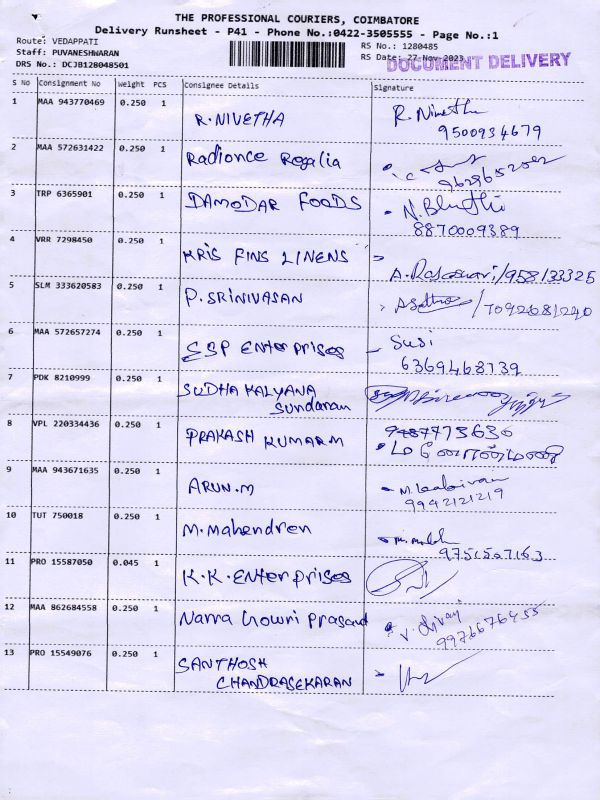 THE PROFESSIONAL COURIERS, COIMBATORE
Delivery Runsheet - P41 - Phone No.:0422-3505555 - Page No.:1
Route: VEDAPPATI
RS No.: 1280485
Staff: PUVANESHWARAN
RS Date: 27-Nov-2023
DRS No.: DCJB128048501
DOCUMENT DELIVERY
S No Consignment No Weight PCS Consignee Details Signature
1 MAA 943770469 0.250 1 R. NIVETHA R. Nivetha
9500934679
2 MAA 572631422 0.250 1 Radionce Regalia
9629652002
3 TRP 6365901 0.250 1 DAMODAR FOODS
8870009389
4 VRR 7298450 0.250 1 KRIS FINS LINENS
5 SLM 333620583 0.250 1 P. SRINIVASAN /7092681240
6 MAA 572657274 0.250 1 ESP Enterprises Susi
6369468739
7 PDK 8210999 0.250 1 SUDHA KALYANA
Sundaram
8 VPL 220334436 0.250 1 PRAKASH KUMAR M
9 MAA 943671635 0.250 1 ARUN.M
9942121219
10 TUT 750018 0.250 1 M. Mahendren
9751507163
11 PRO 15587050 0.045 1 K.K. Enterprises
12 MAA 862684558 0.250 1 Nama Gowri Prasad
9976676455
13 PRO 15549076 0.250 1 SANTHOSH
CHANDRASEKARAN